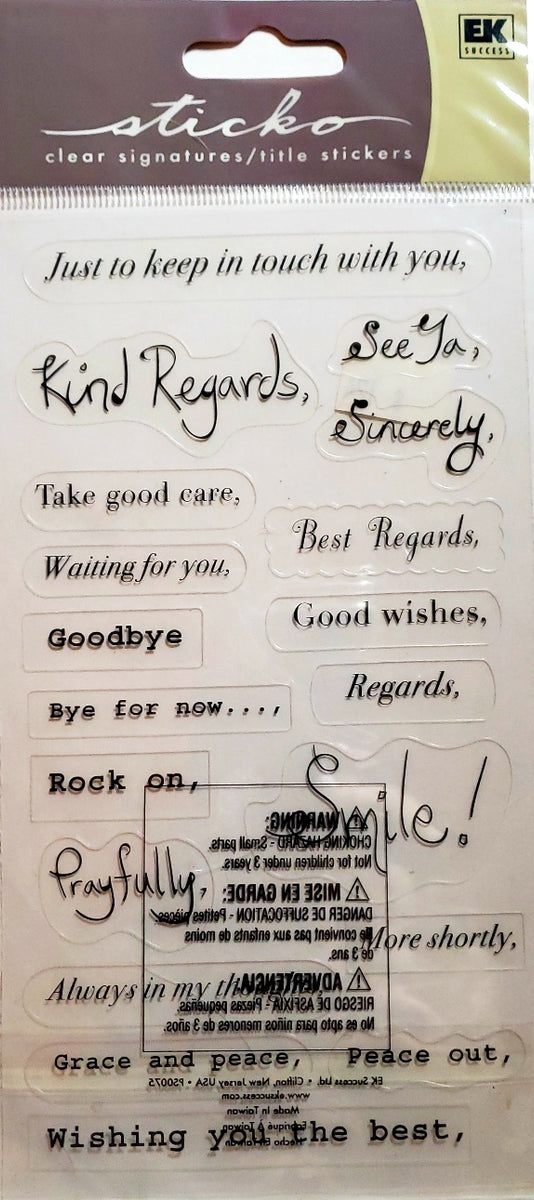 EK
SUCCESS
sticko
clear signatures/title stickers
Just to keep in touch with you,
See Ya,
Kind Regards,
Sincerely,
Take good care,
Best Regards,
Waiting for you,
Good wishes,
Goodbye
Regards,
Bye for now...,
Rock on,
Smile!
WARNING:
CHOKING HAZARD - Small parts.
Not for children under 3 years.
Prayfully,
MISE EN GARDE:
DANGER DE SUFFOCATION - Petites pièces
Ne convient pas aux enfants de moins
de 3 ans.
More shortly,
ADVERTENCIA
Always in my thoughts,
RIESGO DE ASFIXIA - Piezas pequeñas.
No es apto para niños menores de 3 años.
Grace and peace,
Peace out,
EK Success Ltd. • Clifton, New Jersey USA • PS0075
www.eksuccess.com
Made in Taiwan
Fabriqué à Taiwan
Hecho En Taiwan
Wishing you the best,